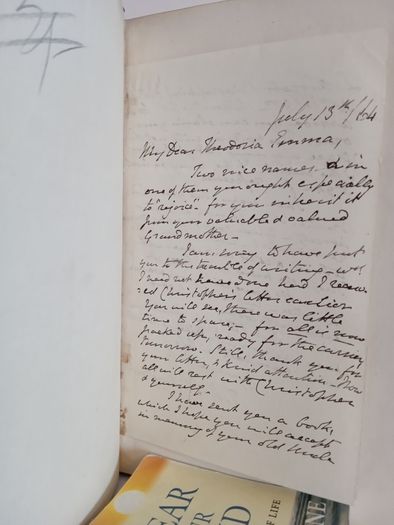 July 13th/64
My Dear Theodosia Emma,
Two nice names & in
one of them you ought especially
to "rejoice" for you inherit it
from your valuable & valued
Grandmother –
I am sorry to have put
you to the trouble of writing – wh:
I need not have done had I receiv
:ed Christopher's letter earlier
You will see, there was little
time to spare; – for all is now
packed up, ready for the carrier,
tomorrow. Still, thank you for
your letter, & kind attention. Now
all will rest with Christopher
& yourself.
I have sent you a book,
which I hope you will accept
in memory of your old Uncle
GAR
ER
D
OF LIFE
NE